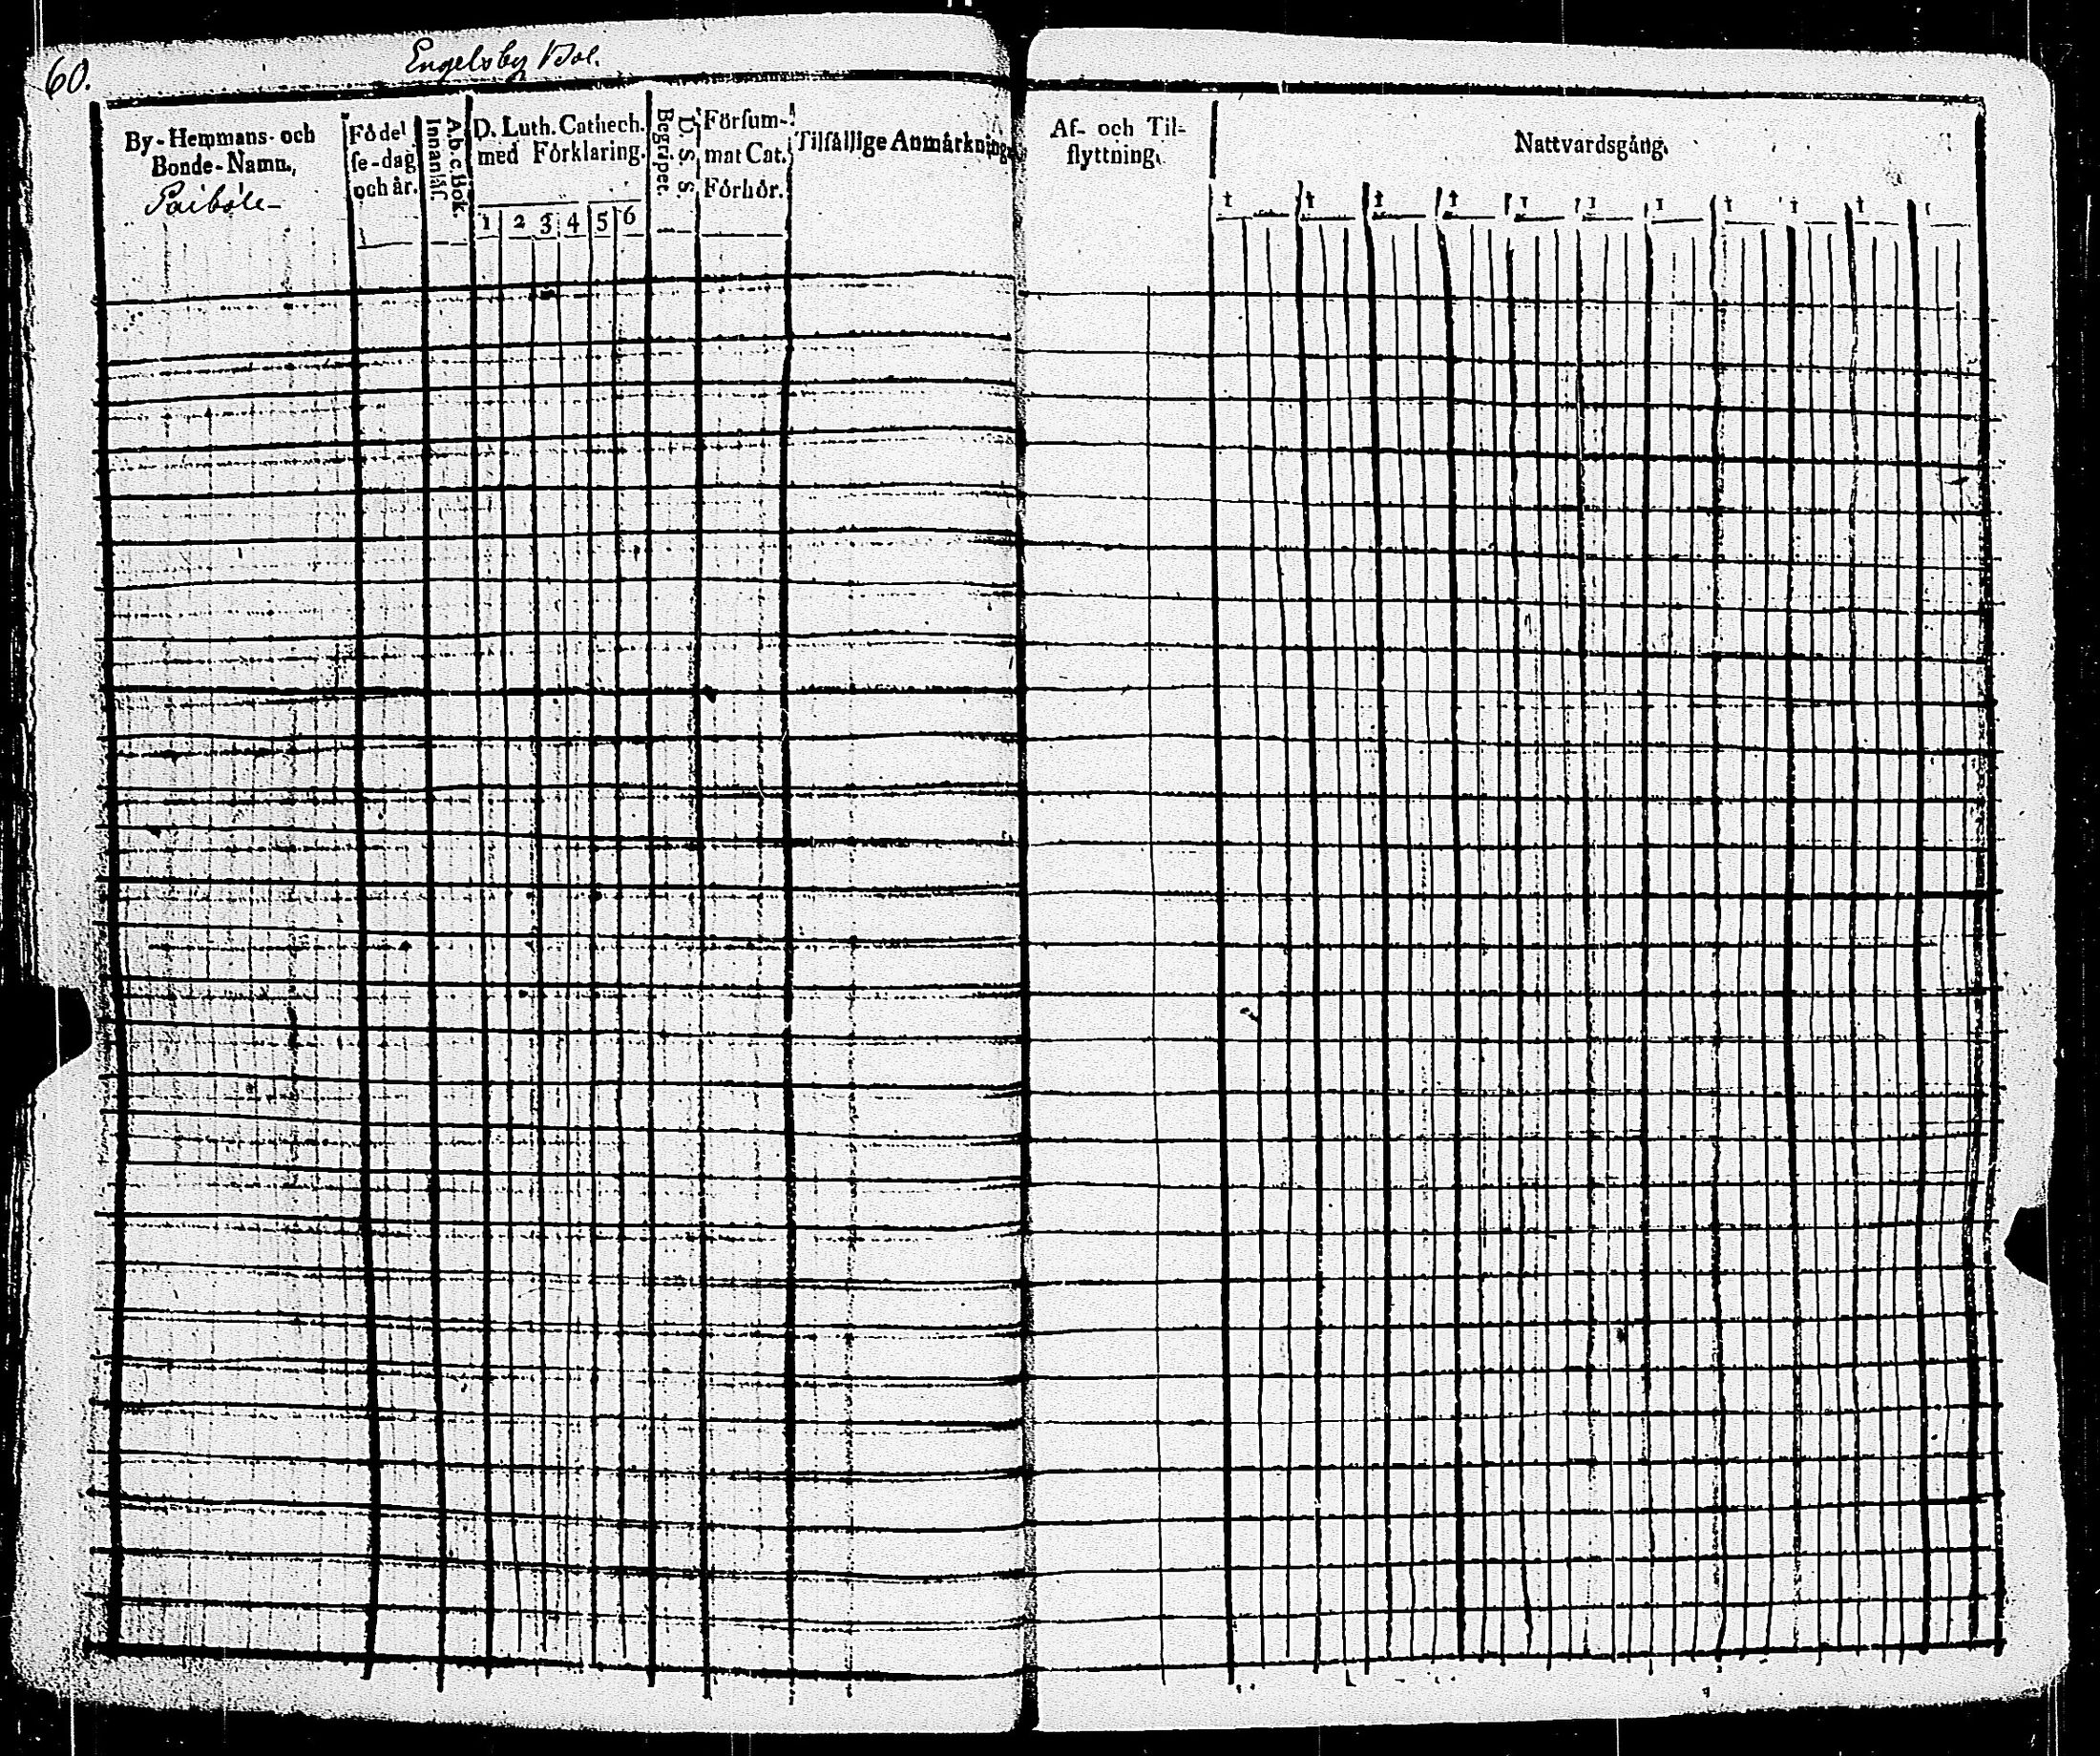 60.
Engelsby Bol.
By-Hemmans- och
Bonde-Namn.
Påiböle
Födel
se-dag
och år.
A.b.c.Bok.
Innanläs.
D. Luth. Cathech.
med Förklaring.
1 2 3 4 5 6
D. S. S.
Begripet.
Försum-
mat Cat.
Förhör.
Tilfällige Anmärkning.
Af- och Til-
flyttning.
Nattvardsgång.